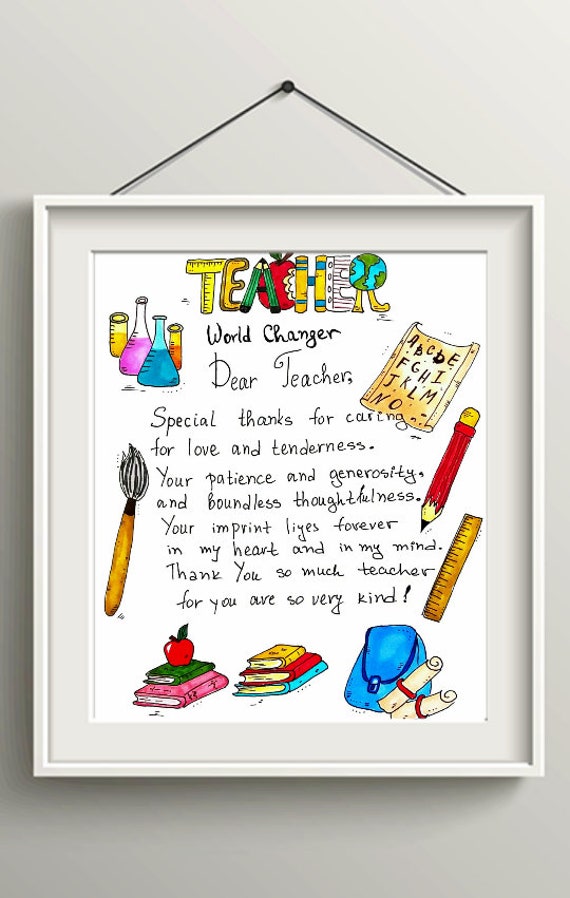 TEACHER
World Changer
Dear Teacher,
Special thanks for caring,
for love and tenderness.
Your patience and generosity,
and boundless thoughtfulness.
Your imprint liyes forever
in my heart and in my mind.
Thank You so much teacher
for you are so very kind!
ABCDE
FGHI
JKLM
NO...